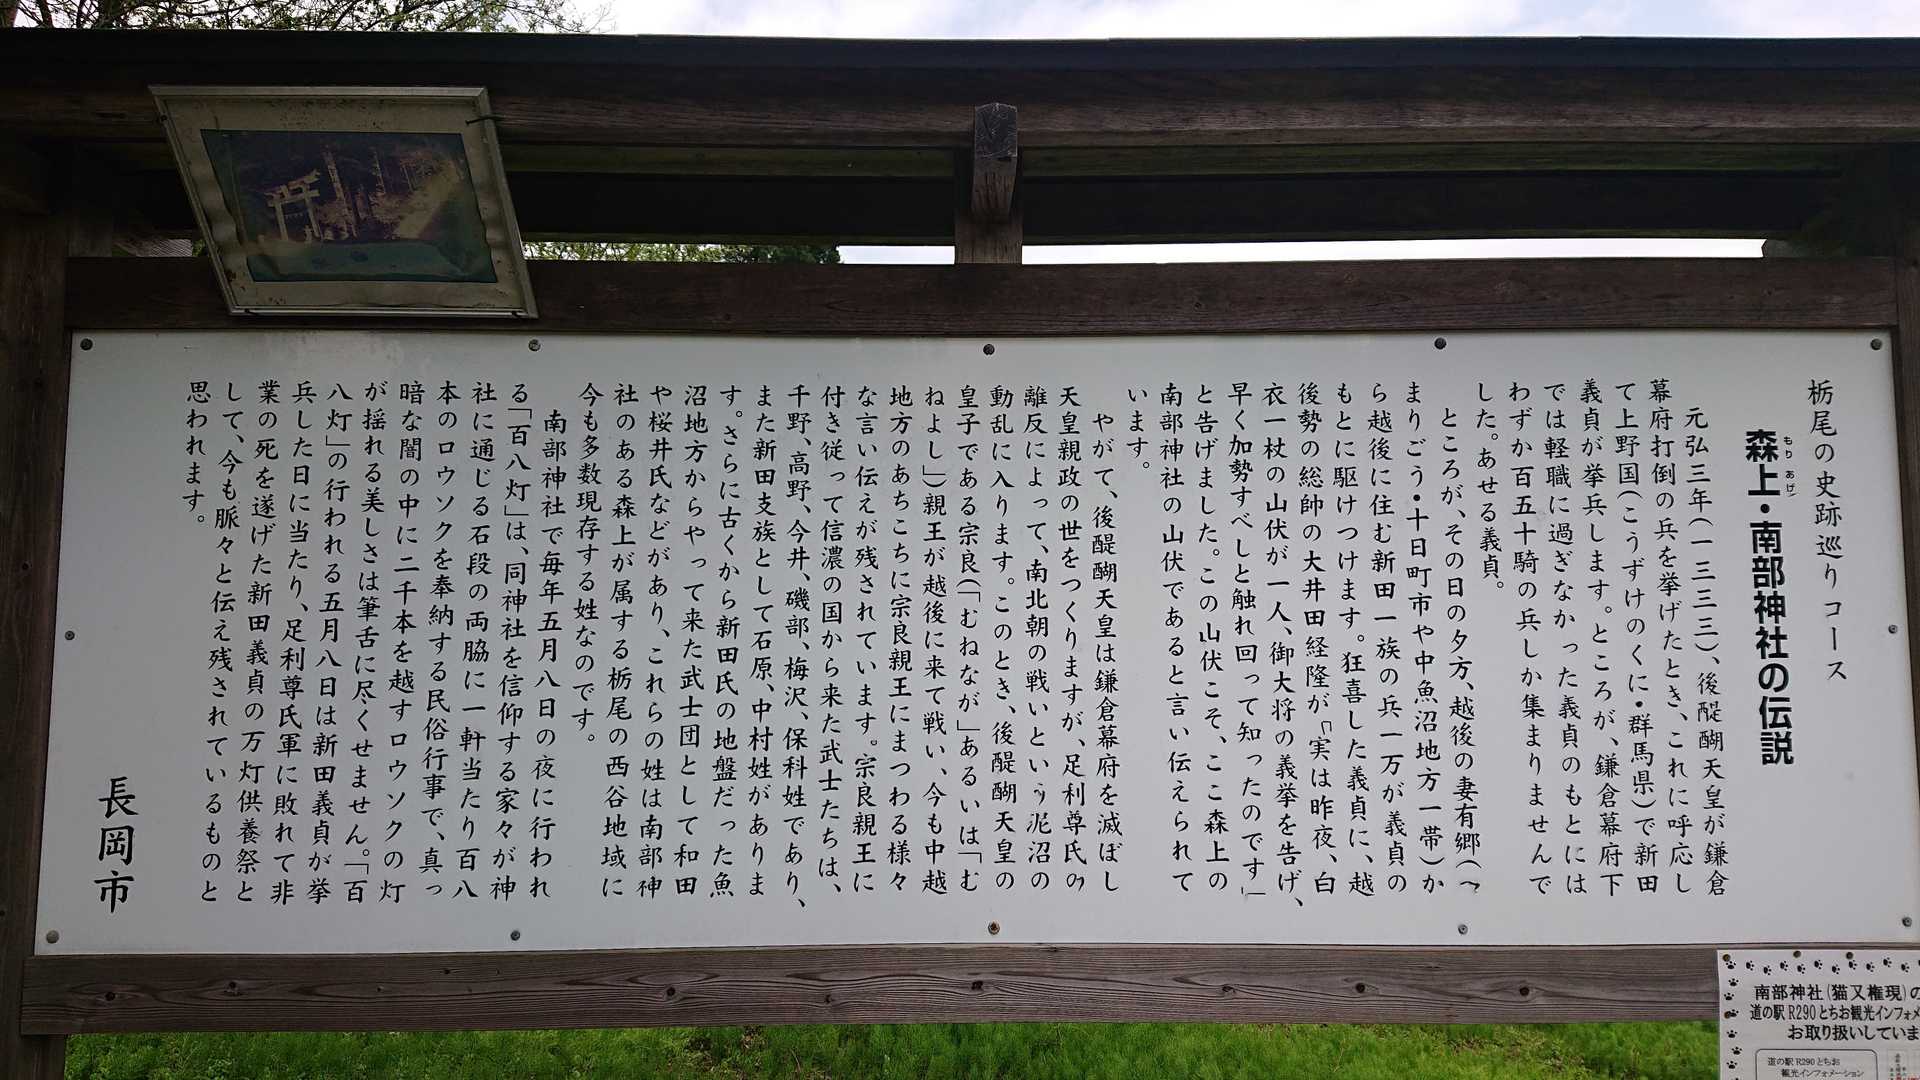 栃尾の史跡巡りコース
もりあげ
森上・南部神社の伝説
元弘三年(一三三三)、後醍醐天皇が鎌倉
幕府打倒の兵を挙げたとき、これに呼応し
て上野国(こうずけのくに・群馬県)で新田
義貞が挙兵します。ところが、鎌倉幕府下
では軽職に過ぎなかった義貞のもとには
わずか百五十騎の兵しか集まりませんで
した。あせる義貞。
ところが、その日の夕方、越後の妻有郷(つ
まりごう・十日町市や中魚沼地方一帯)か
ら越後に住む新田一族の兵一万が義貞の
もとに駆けつけます。狂喜した義貞に、越
後勢の総帥の大井田経隆が「実は昨夜、白
衣一杖の山伏が一人、御大将の義挙を告げ、
早く加勢すべしと触れ回って知ったのです」
と告げました。この山伏こそ、ここ森上の
南部神社の山伏であると言い伝えられて
います。
やがて、後醍醐天皇は鎌倉幕府を滅ぼし
天皇親政の世をつくりますが、足利尊氏の
離反によって、南北朝の戦いという泥沼の
動乱に入ります。このとき、後醍醐天皇の
皇子である宗良(「むねなが」あるいは「む
ねよし」)親王が越後に来て戦い、今も中越
地方のあちこちに宗良親王にまつわる様々
な言い伝えが残されています。宗良親王に
付き従って信濃の国から来た武士たちは、
千野、高野、今井、磯部、梅沢、保科姓であり、
また新田支族として石原、中村姓がありま
す。さらに古くから新田氏の地盤だった魚
沼地方からやって来た武士団として和田
や桜井氏などがあり、これらの姓は南部神
社のある森上が属する栃尾の西谷地域に
今も多数現存する姓なのです。
南部神社で毎年五月八日の夜に行われ
る「百八灯」は、同神社を信仰する家々が神
社に通じる石段の両脇に一軒当たり百八
本のロウソクを奉納する民俗行事で、真っ
暗な闇の中に二千本を越すロウソクの灯
が揺れる美しさは筆舌に尽くせません。「百
八灯」の行われる五月八日は新田義貞が挙
兵した日に当たり、足利尊氏軍に敗れて非
業の死を遂げた新田義貞の万灯供養祭と
して、今も脈々と伝え残されているものと
思われます。
長岡市
南部神社(猫又権現)の
道の駅R290とちお観光インフォメ
お取り扱いしていま
道の駅R290とちお
観光インフォメーション